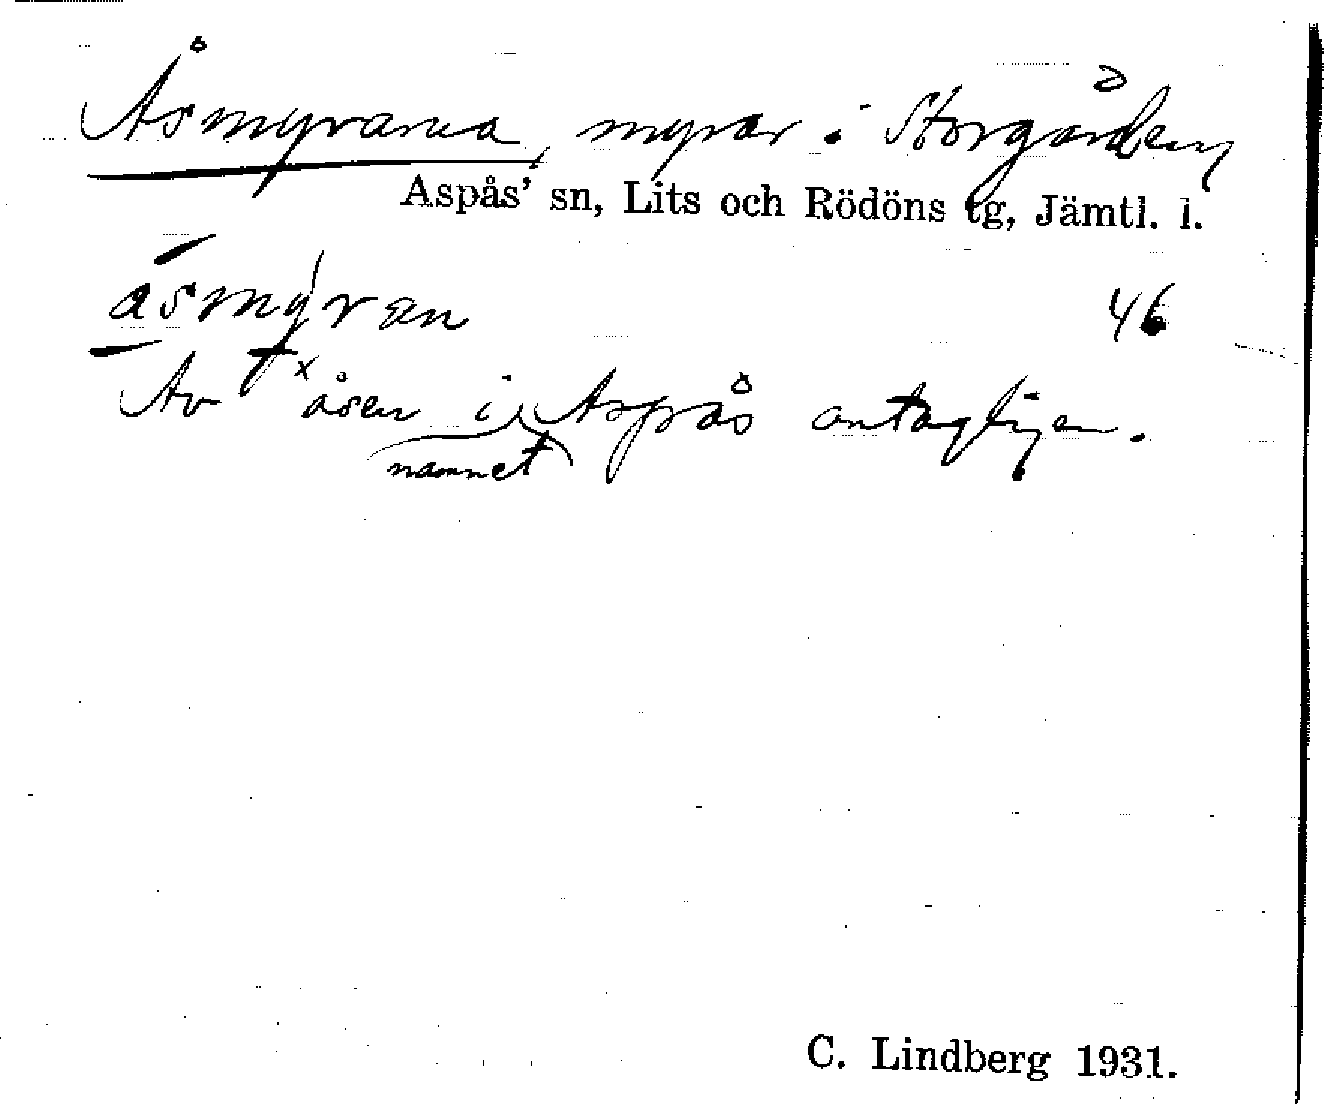 Åsmyrarna, myrar i Storgården,
Aspås' sn, Lits och Rödöns tg, Jämtl. l.
åsmyran 46
Av ˣåsen i Aspås antagligen.
namnet
C. Lindberg 1931.